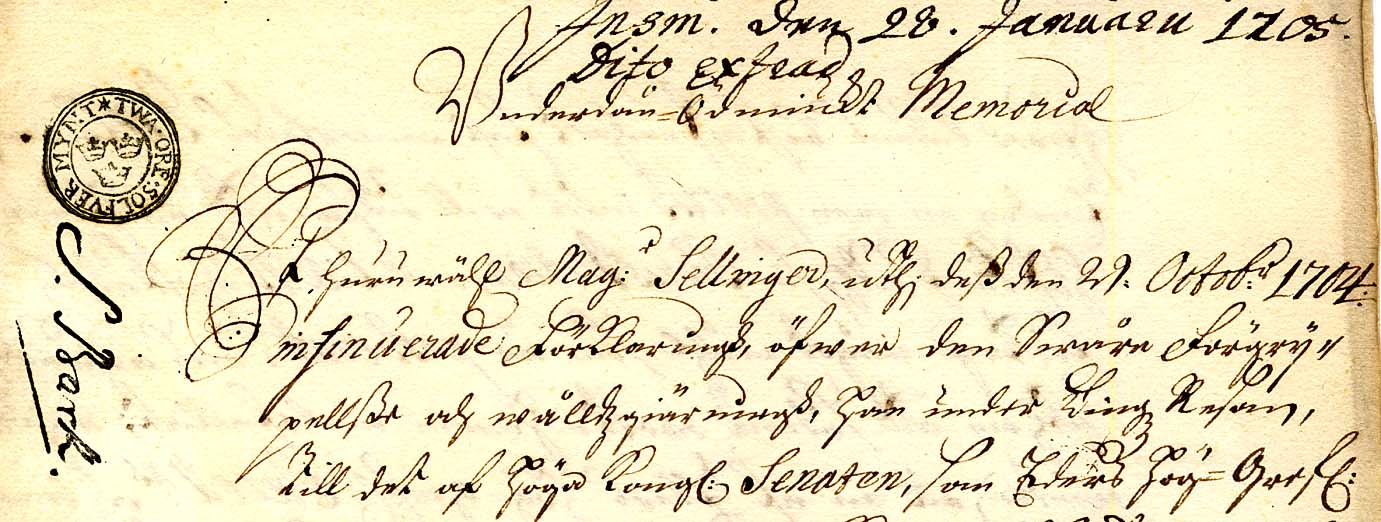 Insin. den 28. Januarii 1705.
Dito extrad
Underdån-Ödmiukt Memorial
TWA·ORE·SOLFVER MYNT
J. Bark.
Ehuruwähl Mag:r Sellinger, uthi deß den 21. Octobr: 1704.
insinuerade Förklaring, öfwer den Swåra Förgry-
pellße och wålldzgiärning, han under Ting Resan,
till det af höga Kongl: Senaten, som Eders hög-Grefl: